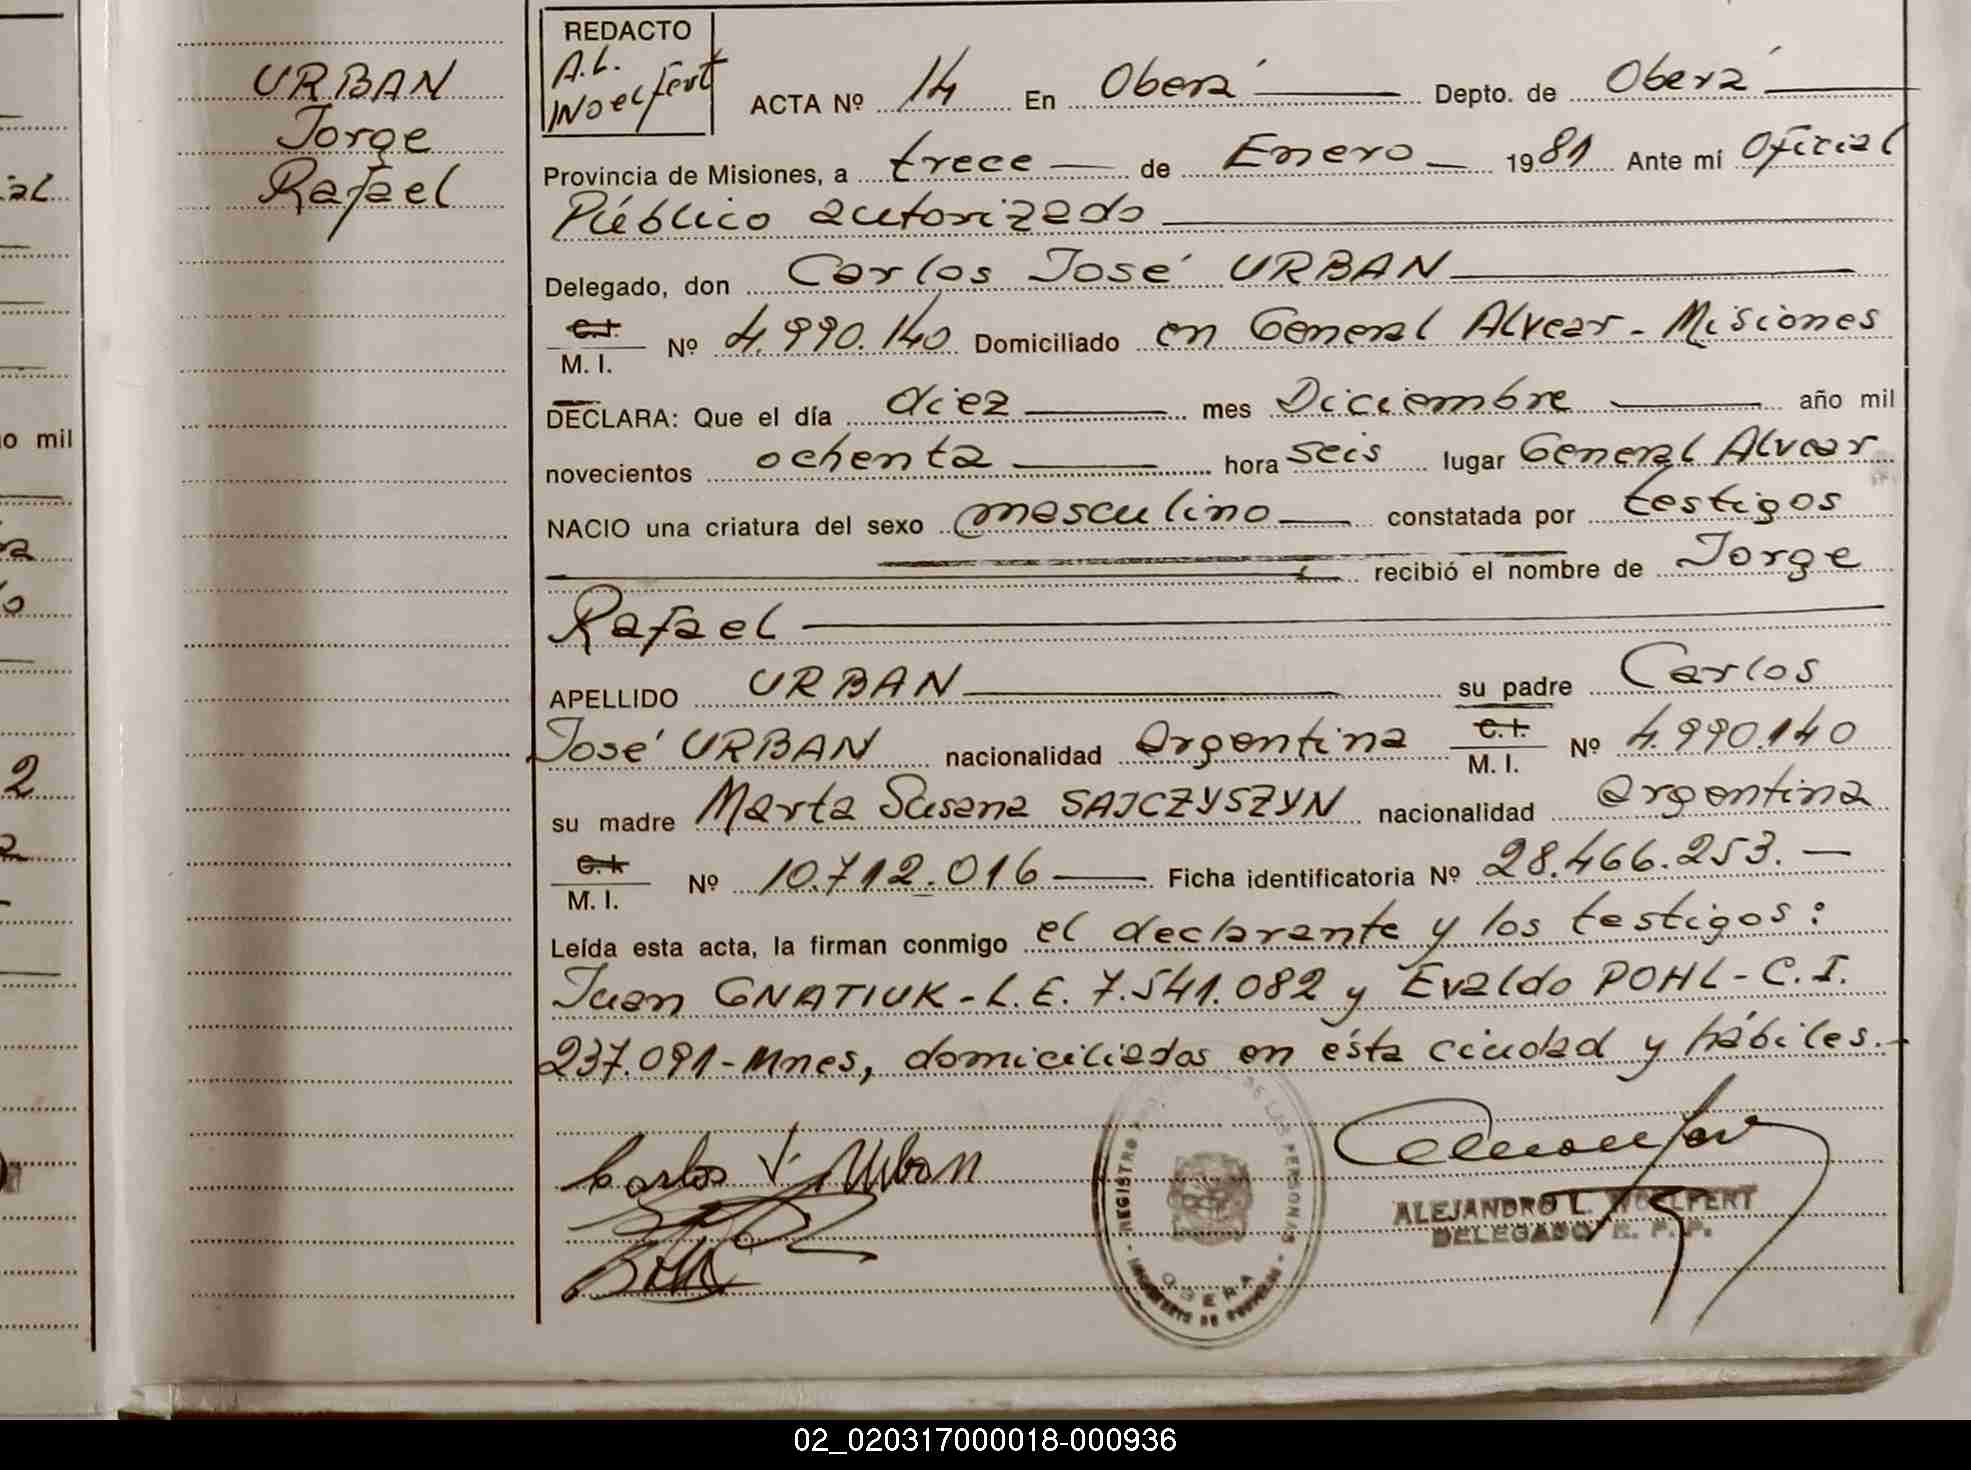 URBAN
Jorge
Rafael
ial
o mil
2
REDACTO
A.L.
Woelfert
ACTA Nº 14 En Oberá Depto. de Oberá
Provincia de Misiones, a trece de Enero 1981 Ante mí Oficial
Público autorizado
Delegado, don Carlos José URBAN
C.I. M. I. Nº 4.990.140 Domiciliado en General Alvear - Misiones
DECLARA: Que el día diez mes Diciembre año mil
novecientos ochenta hora seis lugar General Alvear
NACIO una criatura del sexo masculino constatada por testigos
recibió el nombre de Jorge
Rafael
APELLIDO URBAN su padre Carlos
José URBAN nacionalidad argentina C.I. M. I. Nº 4.990.140
su madre Marta Susana SAJCZYSZYN nacionalidad argentina
C.I. M. I. Nº 10.712.016 Ficha identificatoria Nº 28.466.253.-
Leída esta acta, la firman conmigo el declarante y los testigos:
Juan GNATIUK - L.E. 7.541.082 y Evaldo POHL - C.I.
237.091-Mnes, domiciliados en ésta ciudad y hábiles.-
Carlos J. Urban
REGISTRO DE LAS PERSONAS
OBERA
ALEJANDRO L. WOELFERT
DELEGADO R. P. P.
02_020317000018-000936